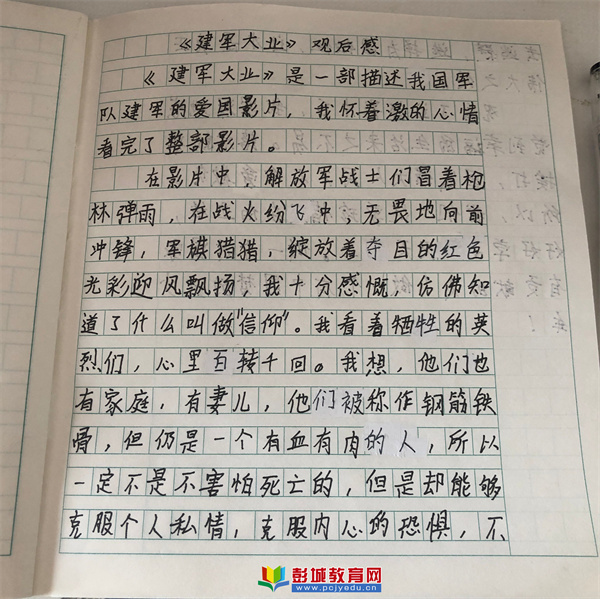 《建军大业》观后感
《建军大业》是一部描述我国军
队建军的爱国影片，我怀着激的心情
看完了整部影片。
在影片中，解放军战士们冒着枪
林弹雨，在战火纷飞中，无畏地向前
冲锋，军旗猎猎，绽放着夺目的红色
光彩迎风飘扬，我十分感慨，仿佛知
道了什么叫做"信仰"。我看着牺牲的英
烈们，心里百转千回。我想，他们也
有家庭，有妻儿，他们被称作钢筋铁
骨，但仍是一个有血有肉的人，所以
一定不是不害怕死亡的，但是却能够
克服个人私情，克服内心的恐惧，不
彭城教育网
www.pcjyedu.com